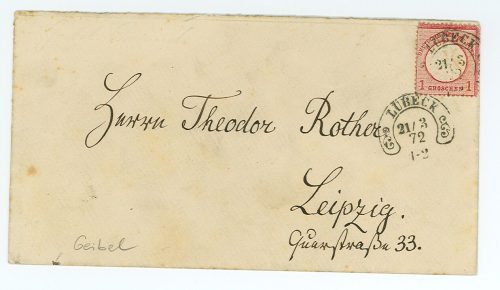 LÜBECK
21/3
1 GROSCHEN 1
LÜBECK
21/3
72
1-2
Herrn Theodor Rother
Leipzig.
Querstraße 33.
Geibel